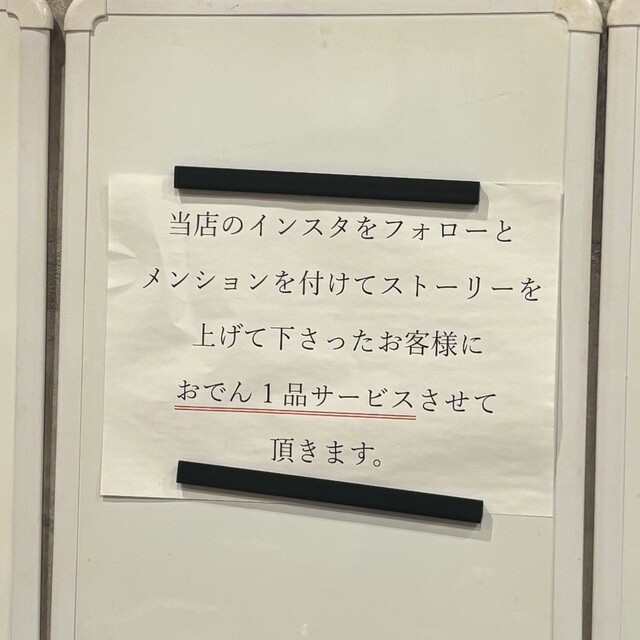 当店のインスタをフォローと
メンションを付けてストーリーを
上げて下さったお客様に
おでん1品サービスさせて
頂きます。